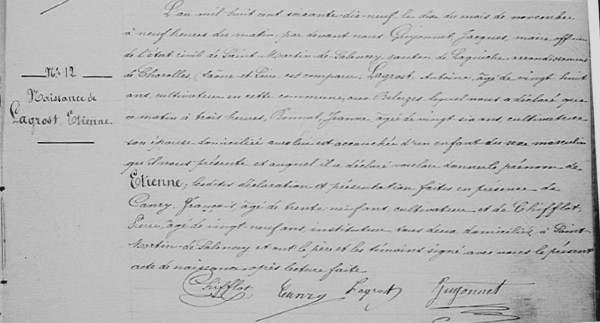 N° 12
Naissance de
Lagrost Etienne
L'an mil huit cent soixante dix-neuf le dix du mois de novembre
à neuf heures du matin, par devant nous Guyonnet, Jacques, maire, officier
de l'état civil de Saint-Martin-de-Salencey, canton de Laguiche, arrondissement
de Charolles, Saône et Loire est comparu Lagrost Antoine, âgé de vingt huit
ans, cultivateur en cette commune, aux lequel nous a déclaré que
ce matin à trois heures, Jeanne, âgée de vingt six ans, cultivatrice
son épouse domiciliée avec lui est accouchée d'un enfant du sexe masculin
qu'il nous présente et auquel il a déclaré vouloir donner le prénom de
Etienne, lesdites déclaration et présentation faites en présence de
Canry, François, âgé de trente neuf ans, cultivateur et de Chifflot,
Pierre, âgé de vingt neuf ans, instituteur tous deux domiciliés à Saint-
Martin-de-Salencey et ont le père et les témoins signé avec nous le présent
acte de naissance après lecture faite.
Chifflot Canry Lagrost Guyonnet